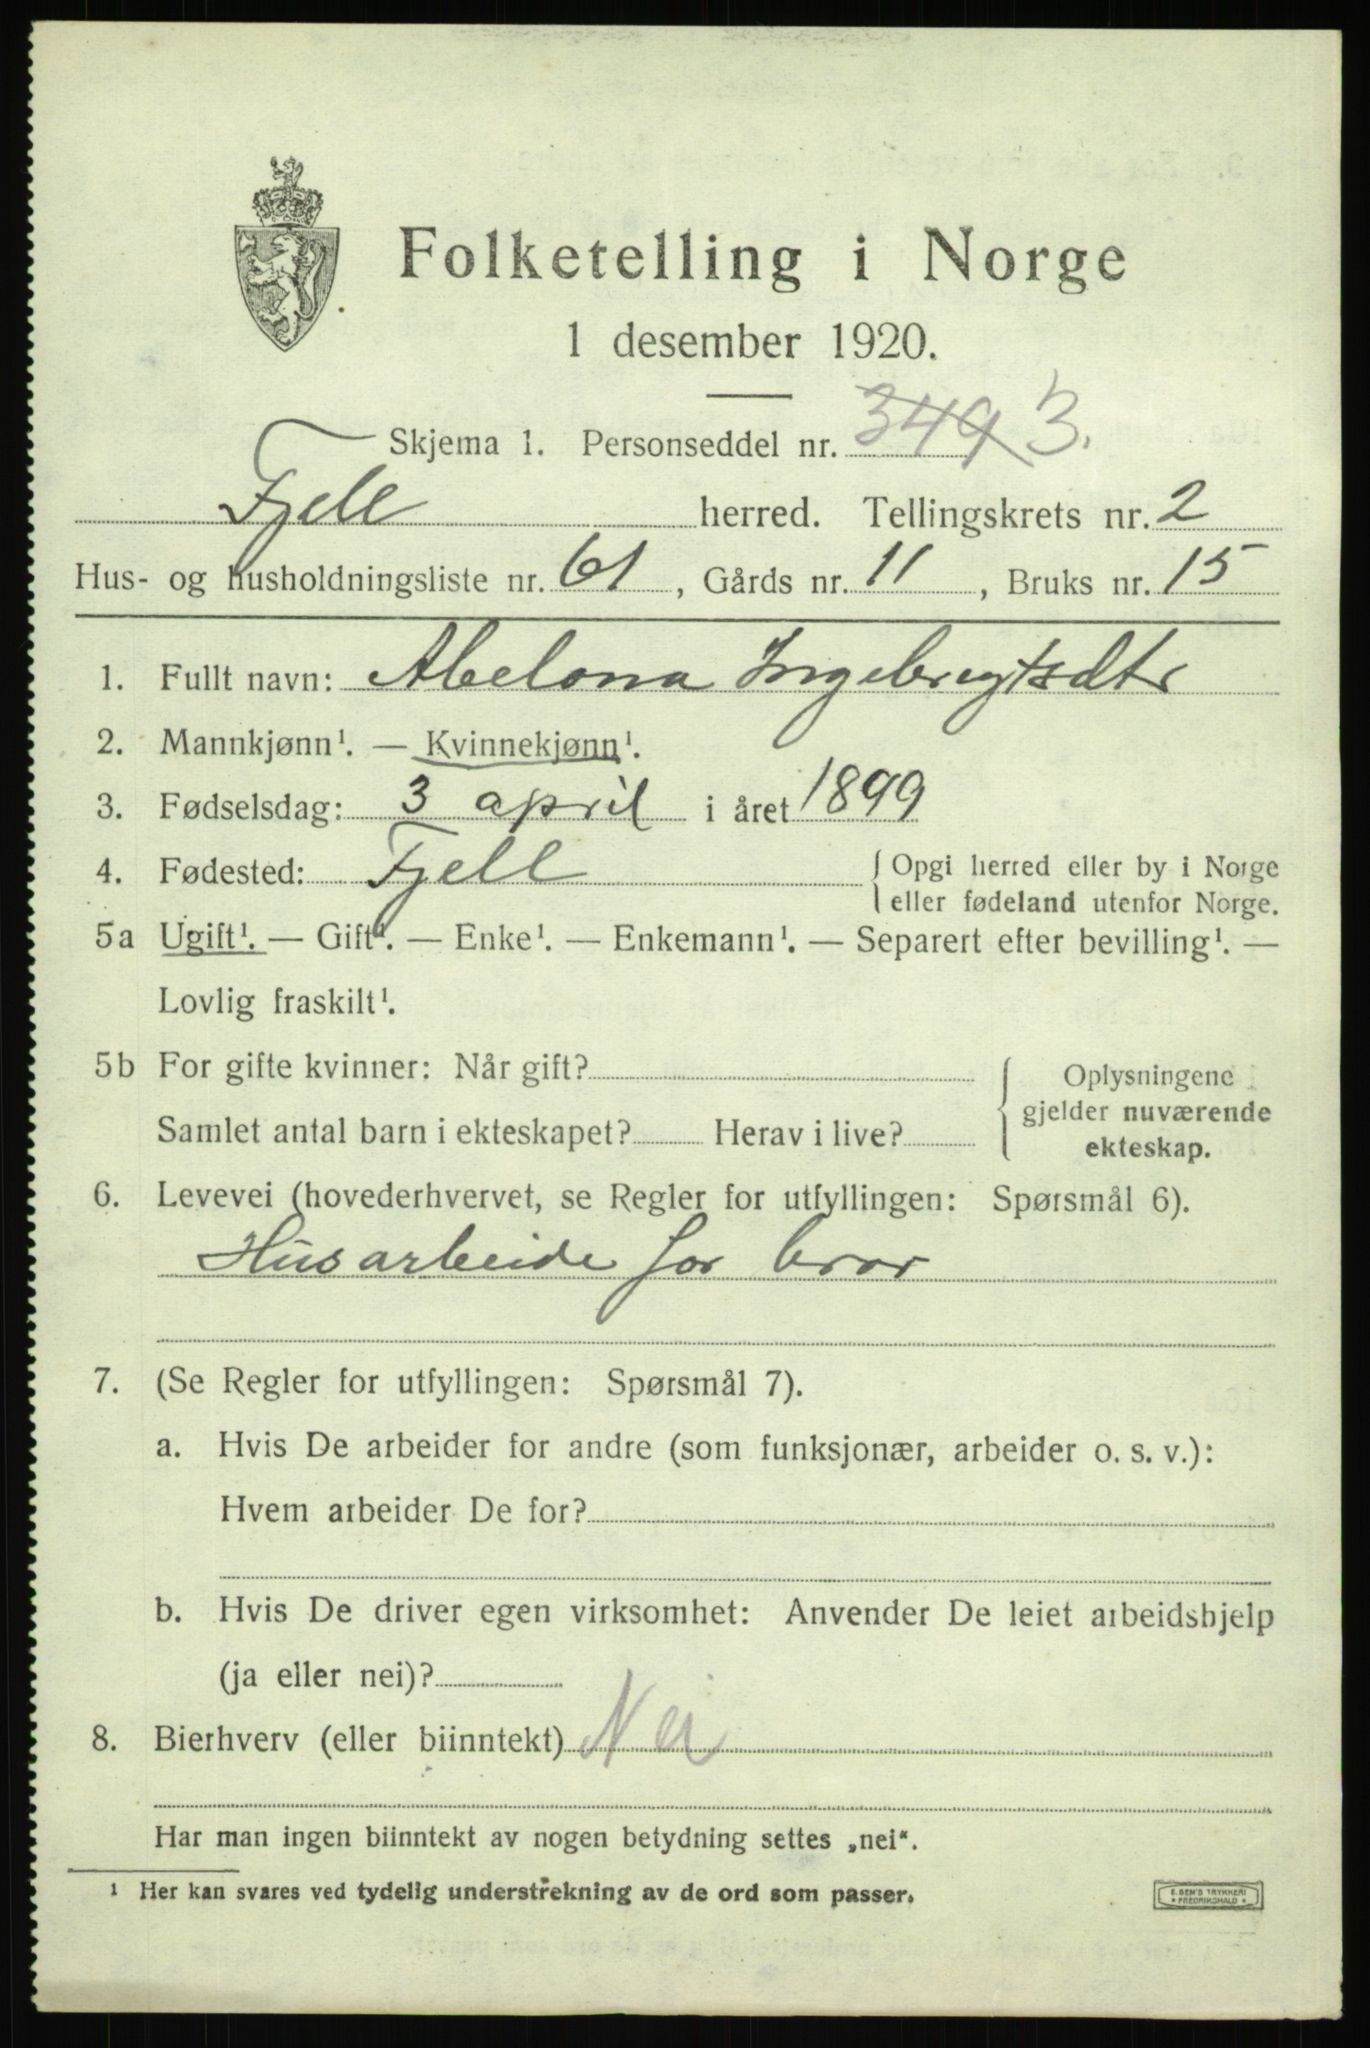 Folketelling i Norge
1 desember 1920.
Skjema 1. Personseddel nr. 349 3.
Fjell herred. Tellingskrets nr. 2
Hus- og husholdningsliste nr. 61, Gårds nr. 11, Bruks nr. 15
1. Fullt navn: Abelona Ingebregtsdtr
2. Mannkjønn¹. — Kvinnekjønn¹.
3. Fødselsdag: 3 april i året 1899
4. Fødested: Fjell { Opgi herred eller by i Norge
eller fødeland utenfor Norge.
5a Ugift¹. — Gift¹. — Enke¹. — Enkemann¹. — Separert efter bevilling¹. —
Lovlig fraskilt¹.
5b For gifte kvinner: Når gift?
Samlet antal barn i ekteskapet? Herav i live?
Oplysningene
gjelder nuværende
ekteskap.
6. Levevei (hovederhvervet, se Regler for utfyllingen: Spørsmål 6).
Husarbeide for bror
7. (Se Regler for utfyllingen: Spørsmål 7).
a. Hvis De arbeider for andre (som funksjonær, arbeider o. s. v.):
Hvem arbeider De for?
b. Hvis De driver egen virksomhet: Anvender De leiet arbeidshjelp
(ja eller nei)?
8. Bierhverv (eller biinntekt) Nei
Har man ingen biinntekt av nogen betydning settes „nei“.
¹ Her kan svares ved tydelig understrekning av de ord som passer.
E. SEM'S TRYKKERI
* FREDRIKSHALD *